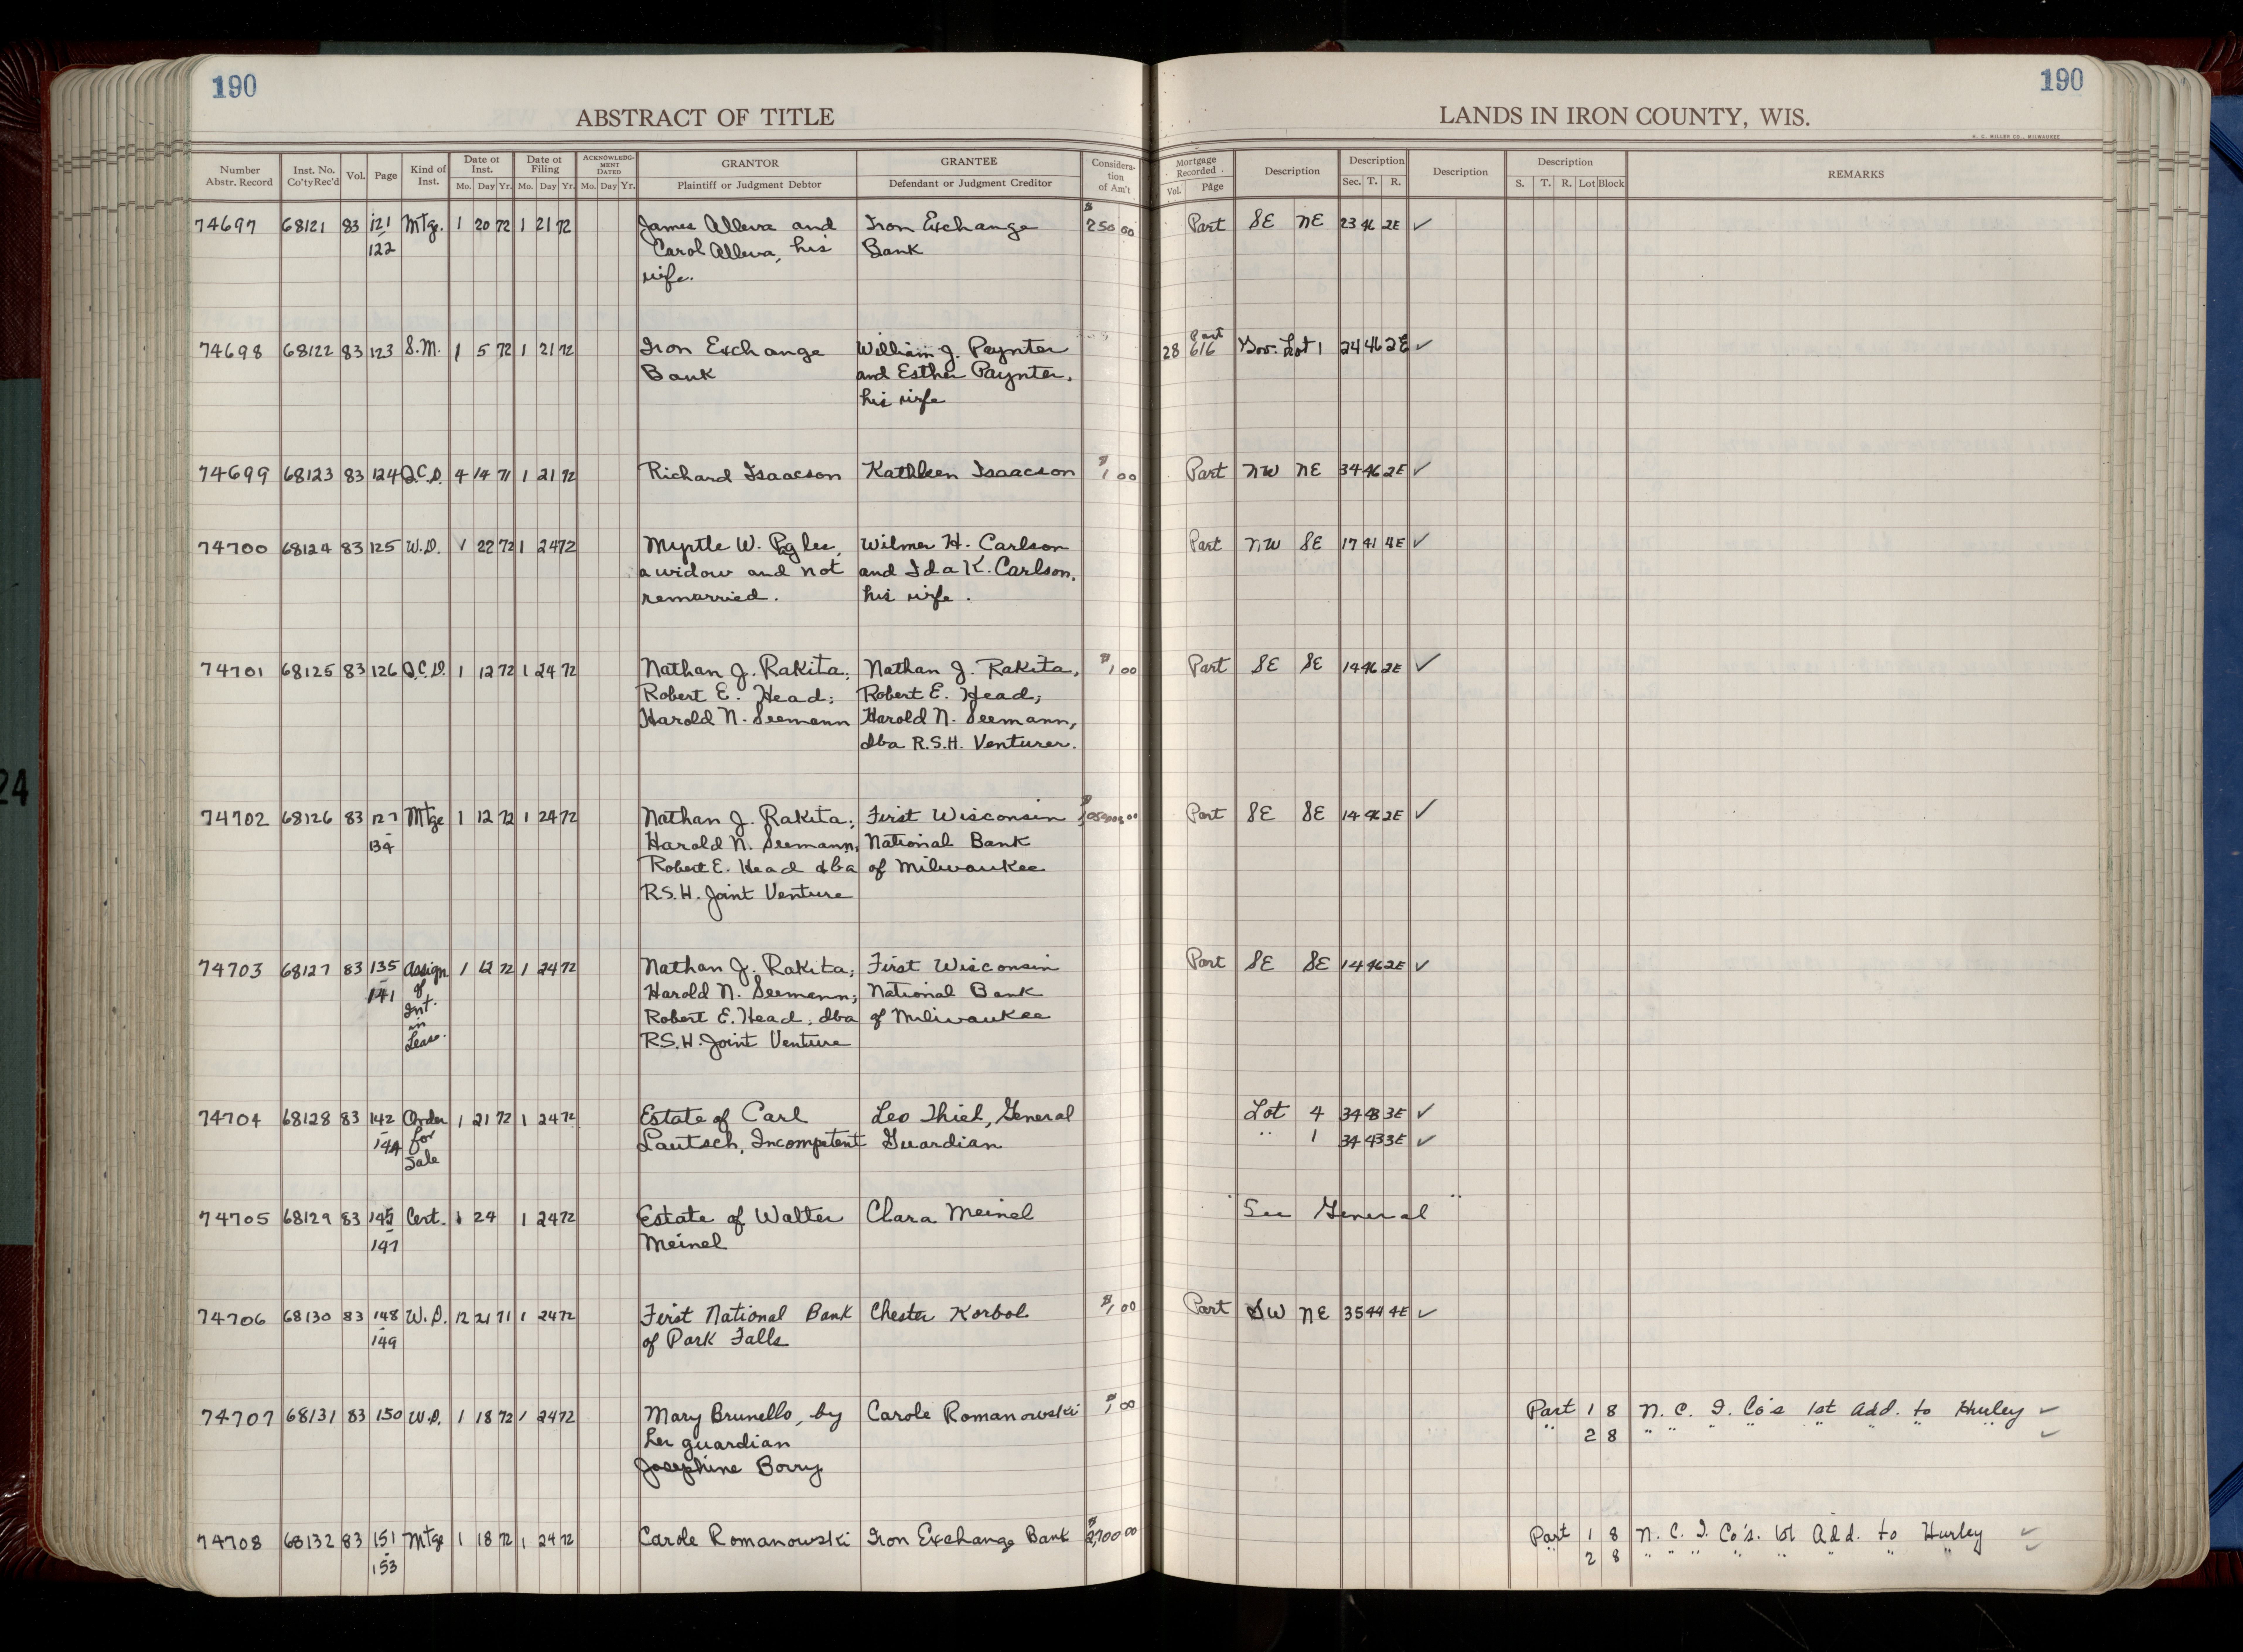 190
190
ABSTRACT OF TITLE
LANDS IN IRON COUNTY, WIS.
H. C. MILLER CO., MILWAUKEE
Number Abstr. Record | Inst. No. Co'ty Rec'd | Vol. | Page | Kind of Inst. | Date of Inst. Mo. Day Yr. | Date of Filing Mo. Day Yr. | ACKNOWLEDGMENT DATED Mo. Day Yr. | GRANTOR Plaintiff or Judgment Debtor | GRANTEE Defendant or Judgment Creditor | Consideration of Am't | Mortgage Recorded Vol. Page | Description | Description Sec. T. R. | Description | Description S. T. R. Lot Block | REMARKS
74697 68121 83 121 Mtge. 1 20 72 1 21 72 James Alleva and Iron Exchange $250 00 Part SE NE 23 46 2E ✓
122 Carol Alleva, his Bank
wife.
Part
74698 68122 83 123 S.M. 1 5 72 1 21 72 Iron Exchange William J. Paynter 28 616 Gov. Lot 1 24 46 2E ✓
Bank and Esther Paynter,
his wife
74699 68123 83 124 Q.C.D. 4 14 71 1 21 72 Richard Isaacson Kathleen Isaacson $1 00 Part NW NE 34 46 2E ✓
74700 68124 83 125 W.D. 1 22 72 1 24 72 Myrtle W. Wilmer H. Carlson Part NW SE 17 41 4E ✓
a widow and not and Ida K. Carlson,
remarried. his wife.
74701 68125 83 126 Q.C.D. 1 12 72 1 24 72 Nathan J. Rakita; Nathan J. Rakita, $1 00 Part SE SE 14 46 2E ✓
Robert E. Head; Robert E. Head;
Harold N. Seemann Harold N. Seemann,
dba R.S.H. Venturer.
74702 68126 83 127 Mtge 1 12 72 1 24 72 Nathan J. Rakita; First Wisconsin Part SE SE 14 46 2E ✓
134 Harold N. Seemann; National Bank
Robert E. Head dba of Milwaukee
R.S.H. Joint Venture
74703 68127 83 135 Assign 1 12 72 1 24 72 Nathan J. Rakita; First Wisconsin Part SE SE 14 46 2E ✓
141 of Harold N. Seemann; National Bank
Int. Robert E. Head, dba of Milwaukee
in R.S.H. Joint Venture
Lease.
74704 68128 83 142 Order 1 21 72 1 24 72 Estate of Carl Leo Thiel, General Lot 4 34 43 3E ✓
144 for Lautsch, Incompetent Guardian " 1 34 43 3E ✓
Sale
74705 68129 83 145 Cert. 1 24 1 24 72 Estate of Walter Clara Meinel "See General"
147 Meinel
74706 68130 83 148 W.D. 12 21 71 1 24 72 First National Bank Chester Korbol $1 00 Part SW NE 35 44 4E ✓
149 of Park Falls
74707 68131 83 150 W.D. 1 18 72 1 24 72 Mary Brunello, by Carole Romanowski $1 00 Part 1 8 N. C. I. Co's 1st Add. to Hurley ✓
her guardian " 2 8 " " " " " " " " ✓
Josephine Borry
74708 68132 83 151 Mtge 1 18 72 1 24 72 Carole Romanowski Iron Exchange Bank $2,700 00 Part 1 8 N. C. I. Co's. 1st Add. to Hurley ✓
153 " 2 8 " " " " " " " " ✓
24